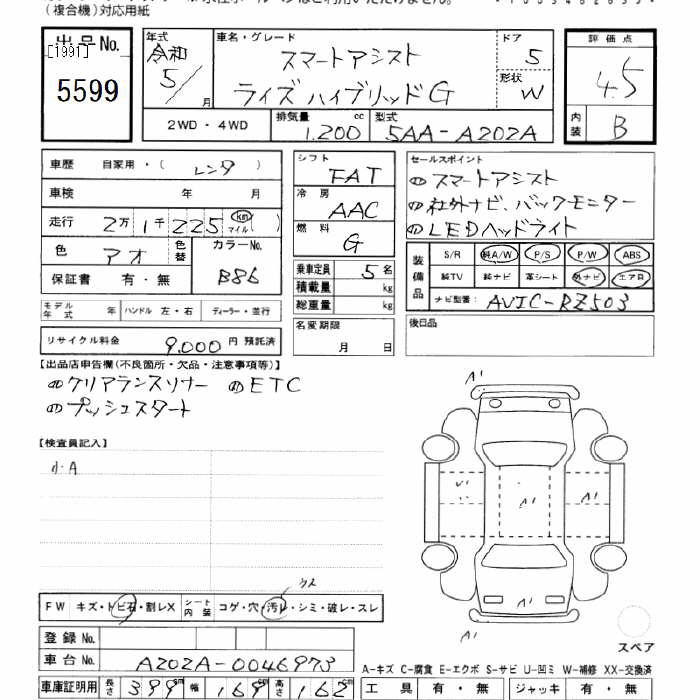 (複合機)対応用紙
出品No.
[1991]
5599
年式 令和 5/ 月
車名・グレード スマートアシスト
ライズ ハイブリッドG
ドア 5
形状 W
評価点 4.5
内装 B
2WD・4WD
排気量 1.200 cc
型式 5AA-A202A
車歴 自家用・(レンタ)
車検 年 月
走行 2万1千225 km マイル
色 アオ 色替 カラーNo. B86
保証書 有・無
モデル年式 年 ハンドル 左・右 ディーラー・並行
リサイクル料金 9.000 円 預託済
シフト FAT
冷房 AAC
燃料 G
乗車定員 5名
積載量 kg
総重量 kg
名変期限 月 日
セールスポイント
の スマートアシスト
の 社外ナビ、バックモニター
の LEDヘッドライト
装備品 S/R 純A/W P/S P/W ABS
純TV 純ナビ 革シート 外ナビ エアロ
ナビ型番: AVIC-RZ503
後日品
【出品店申告欄(不良箇所・欠品・注意事項等)】
の クリアランスソナー の ETC
の プッシュスタート
【検査員記入】
小A
A'
A'
A'
A'
A'
FW キズ・トビ石・割レX シート内装 コゲ・穴・汚レ・シミ・破レ・スレ
登録No.
車台No. A202A-0046973
車庫証明用 長さ 399cm 幅 169cm 高さ 162cm
スペア
A-キズ C-腐食 E-エクボ S-サビ U-凹ミ W-補修 XX-交換済
工具 有・無 ジャッキ 有・無